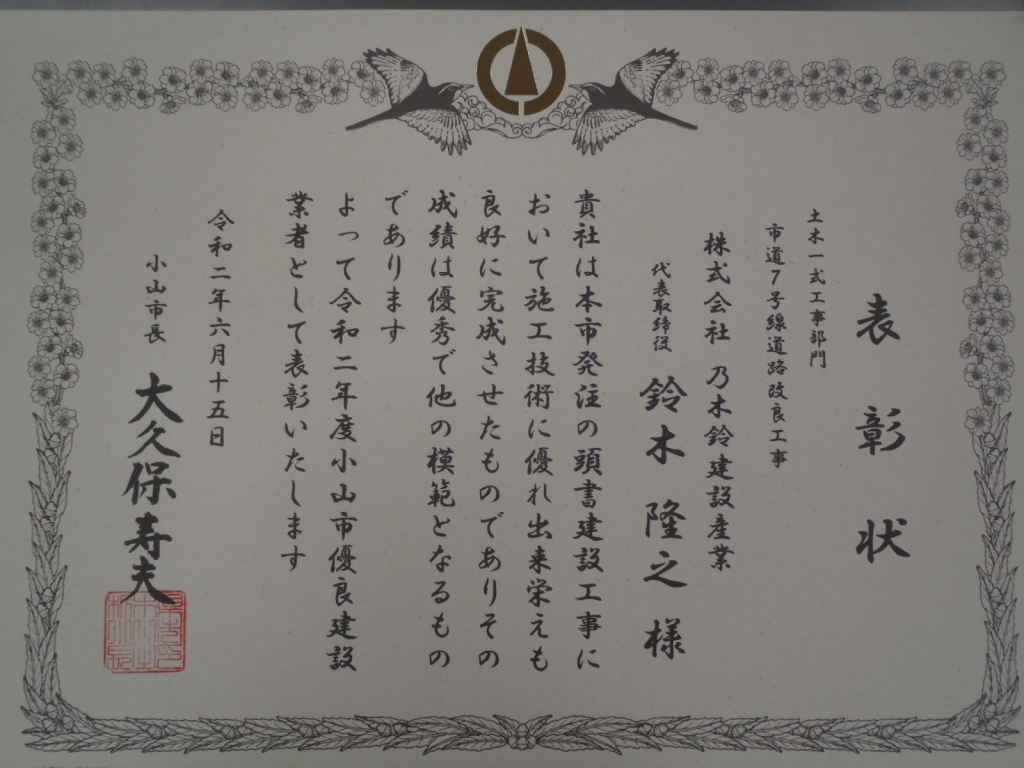 表彰状
土木一式工事部門
市道7号線道路改良工事
株式会社 乃木鈴建設産業
代表取締役 鈴木 隆之 様
貴社は本市発注の頭書建設工事に
おいて施工技術に優れ出来栄えも
良好に完成させたものでありその
成績は優秀で他の模範となるもの
であります
よって令和二年度小山市優良建設
業者として表彰いたします
令和二年六月十五日
小山市長 大久保寿夫